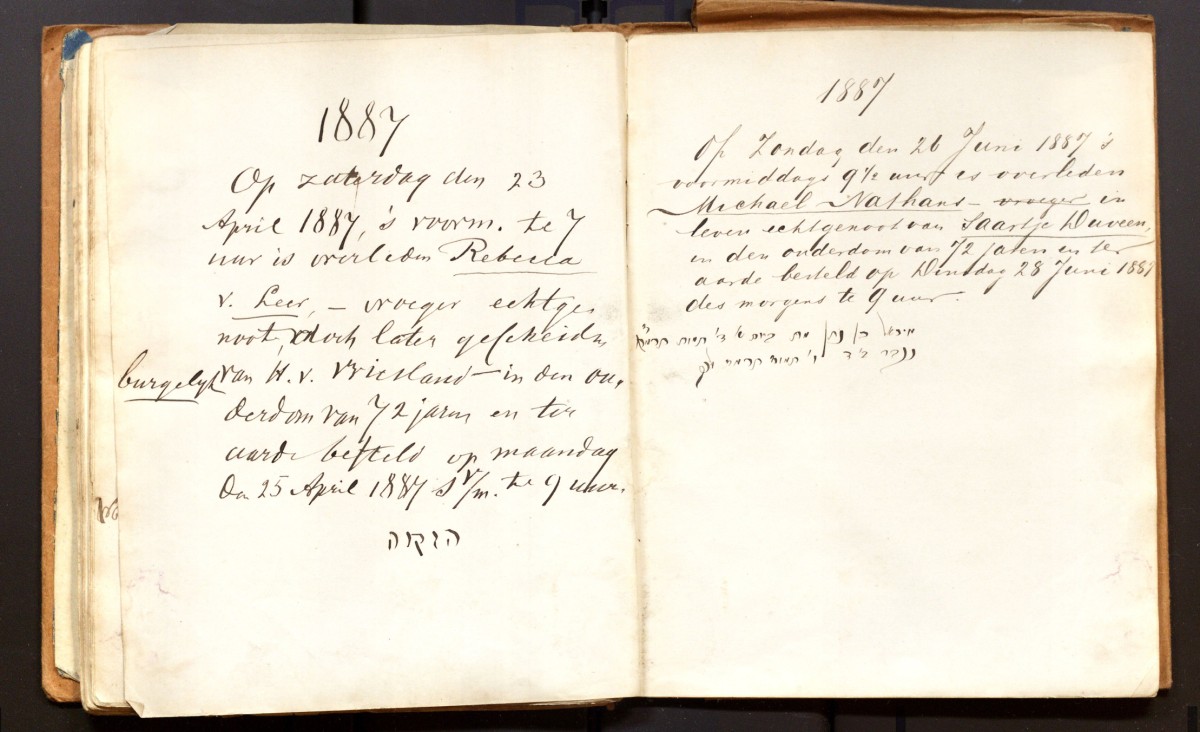 1887
Op zaterdag den 23
April 1887, 's voorm. te 7
uur is overleden Rebecca
v. Leer, – vroeger echtge
noot, doch later gescheiden
burgelijk van H. v. Vriesland – in den ou,
derdom van 72 jaren en ter
aarde besteld op maandag
den 25 April 1887 's v/m. te 9 uur.
1887
Op Zondag den 26 Juni 1887 's
voormiddags 9½ uur is overleden
Michael Nathans – vroeger in
leven echtgenoot van Saartje Duveen,
in den ouderdom van 72 jaren en ter
aarde besteld op Dinsdag 28 Juni 1887
des morgens te 9 uur.
בן נתן מת ביום א' ד' תמוז
ונקבר ביום ו' תמוז